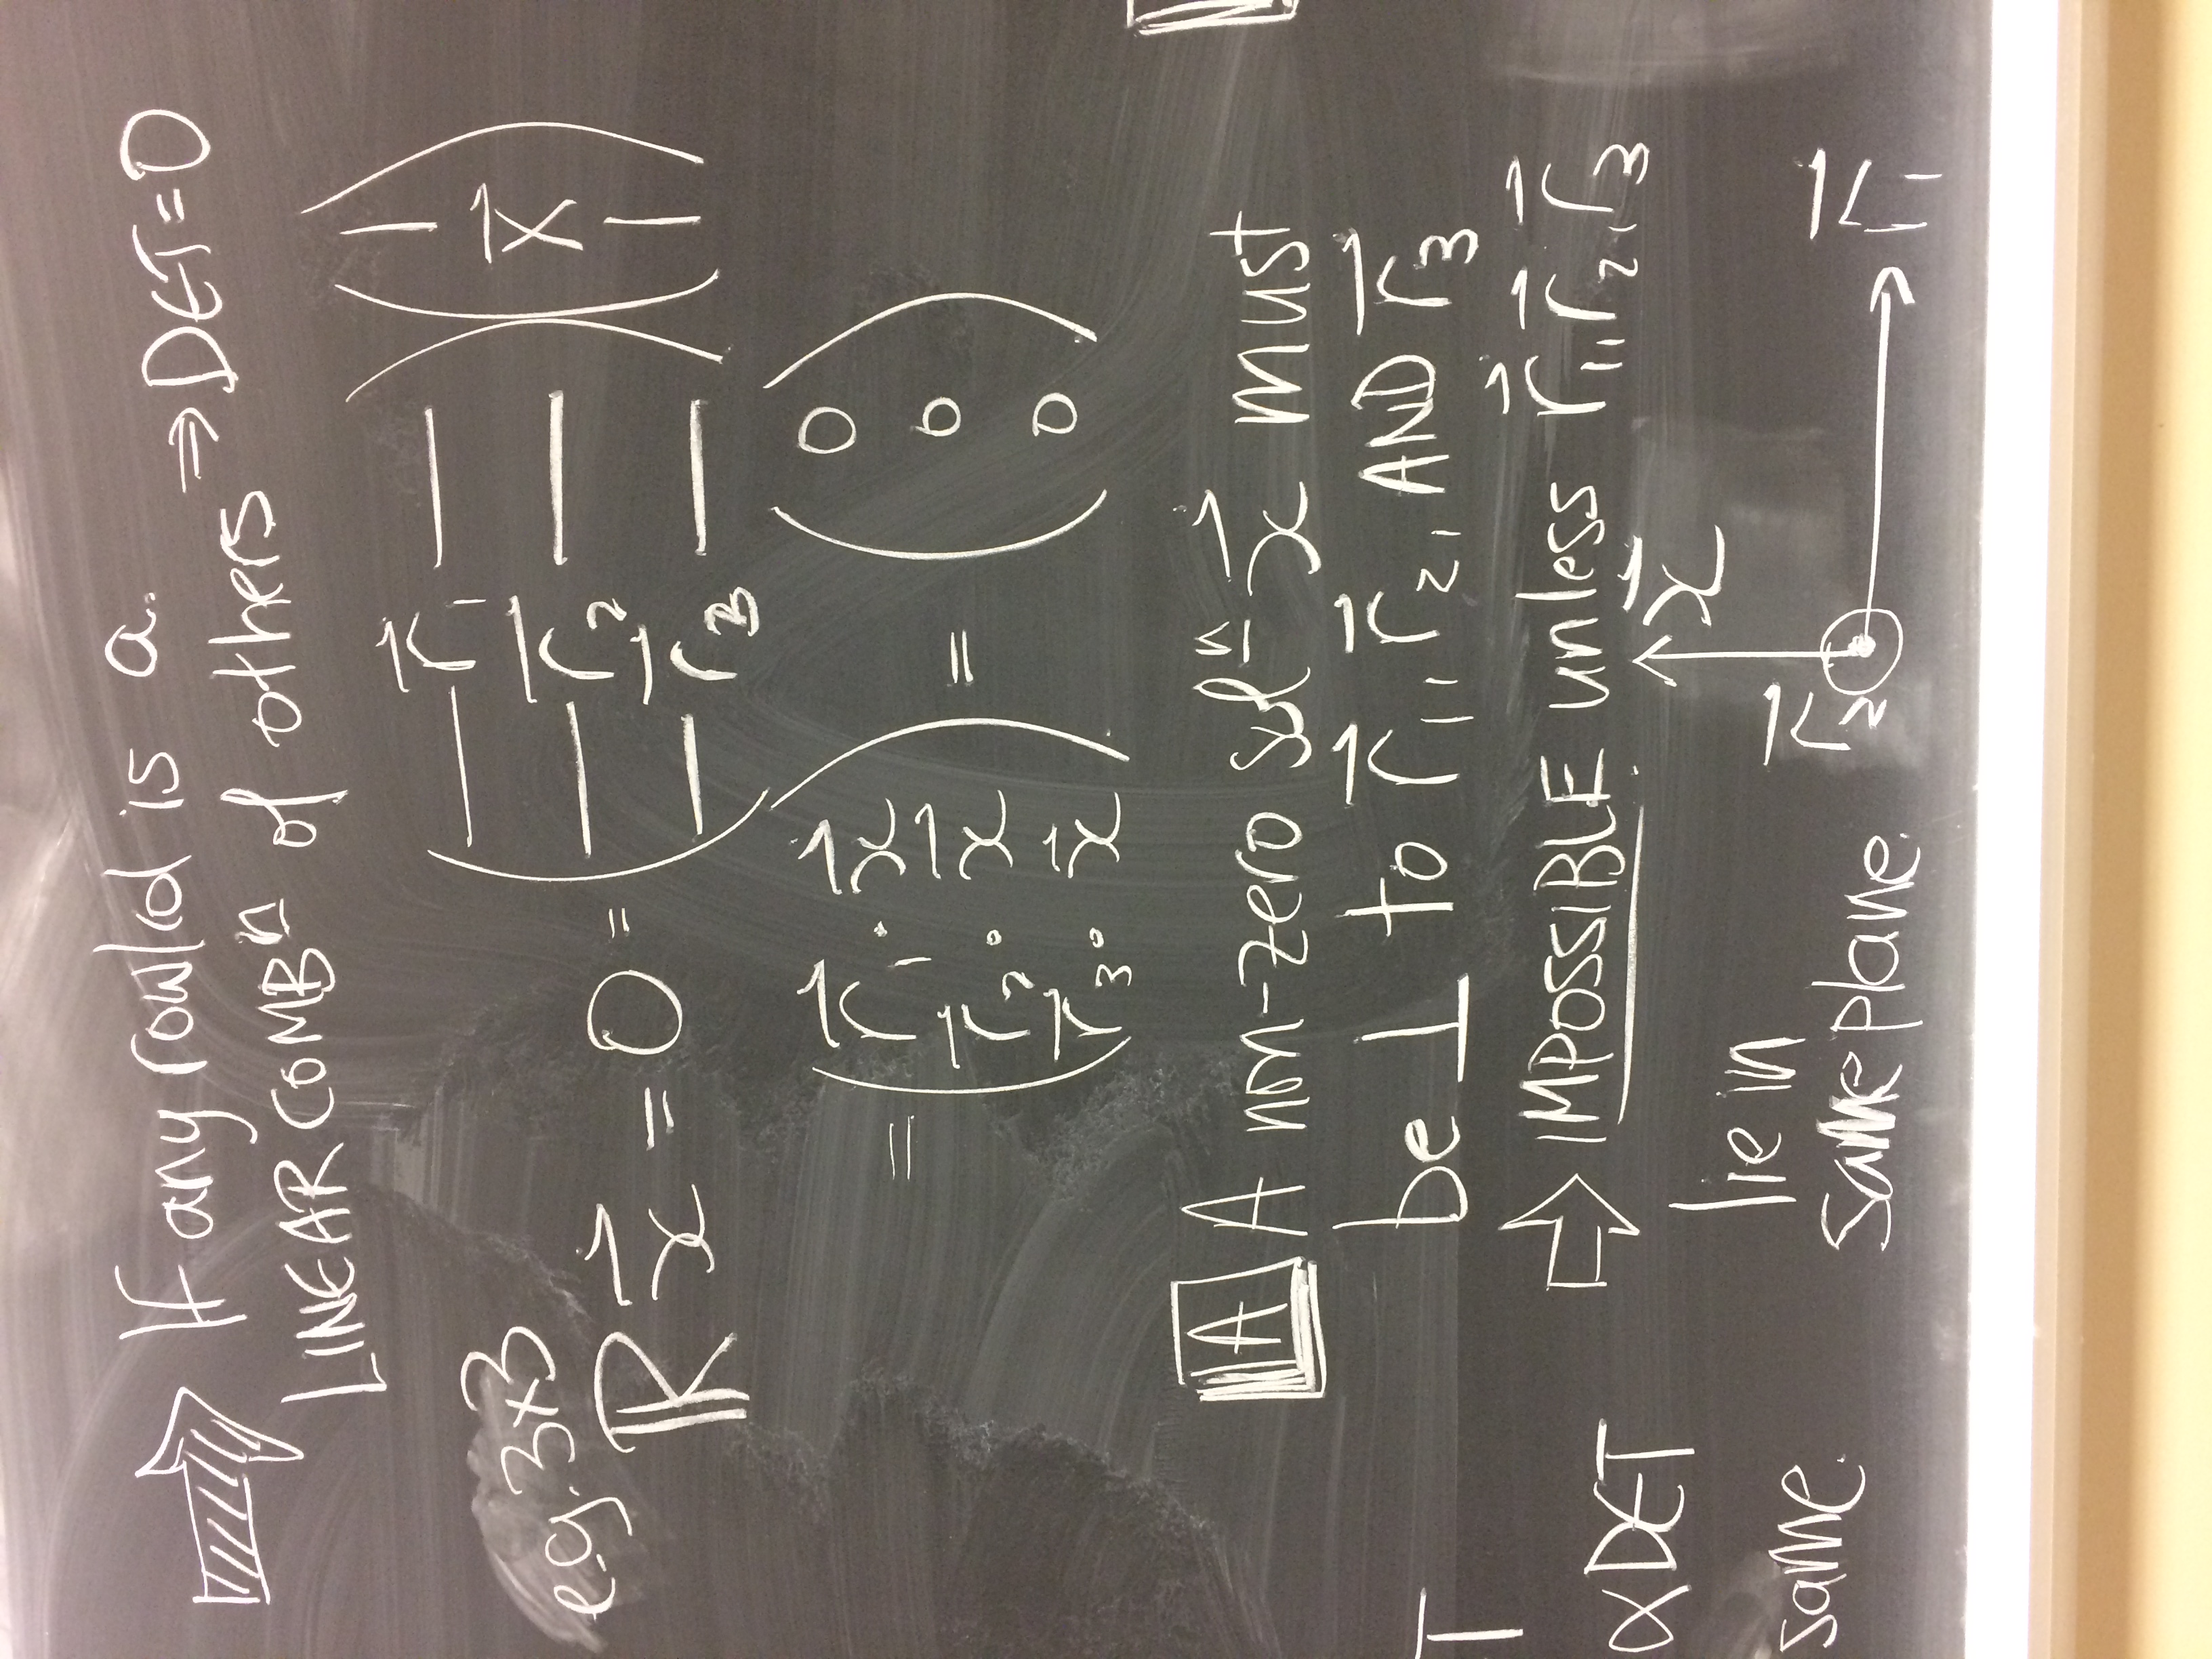 If any row/col is a
LINEAR COMBⁿ of others ⇒ DET = 0
e.g. 3x3
ℝ x⃗ = 0 = ( — r⃗₁ — — r⃗₂ — — r⃗₃ — ) ( | x⃗ | )
= ( r⃗₁ · x⃗ r⃗₂ · x⃗ r⃗₃ · x⃗ ) = ( 0 0 0 )
A A non-zero solⁿ x⃗ must
be ⊥ to r⃗₁, r⃗₂, AND r⃗₃
⇒ IMPOSSIBLE unless r⃗₁, r⃗₂, r⃗₃
lie in
same plane.
x⃗
r⃗₂
r⃗₁
T
αDET
same.